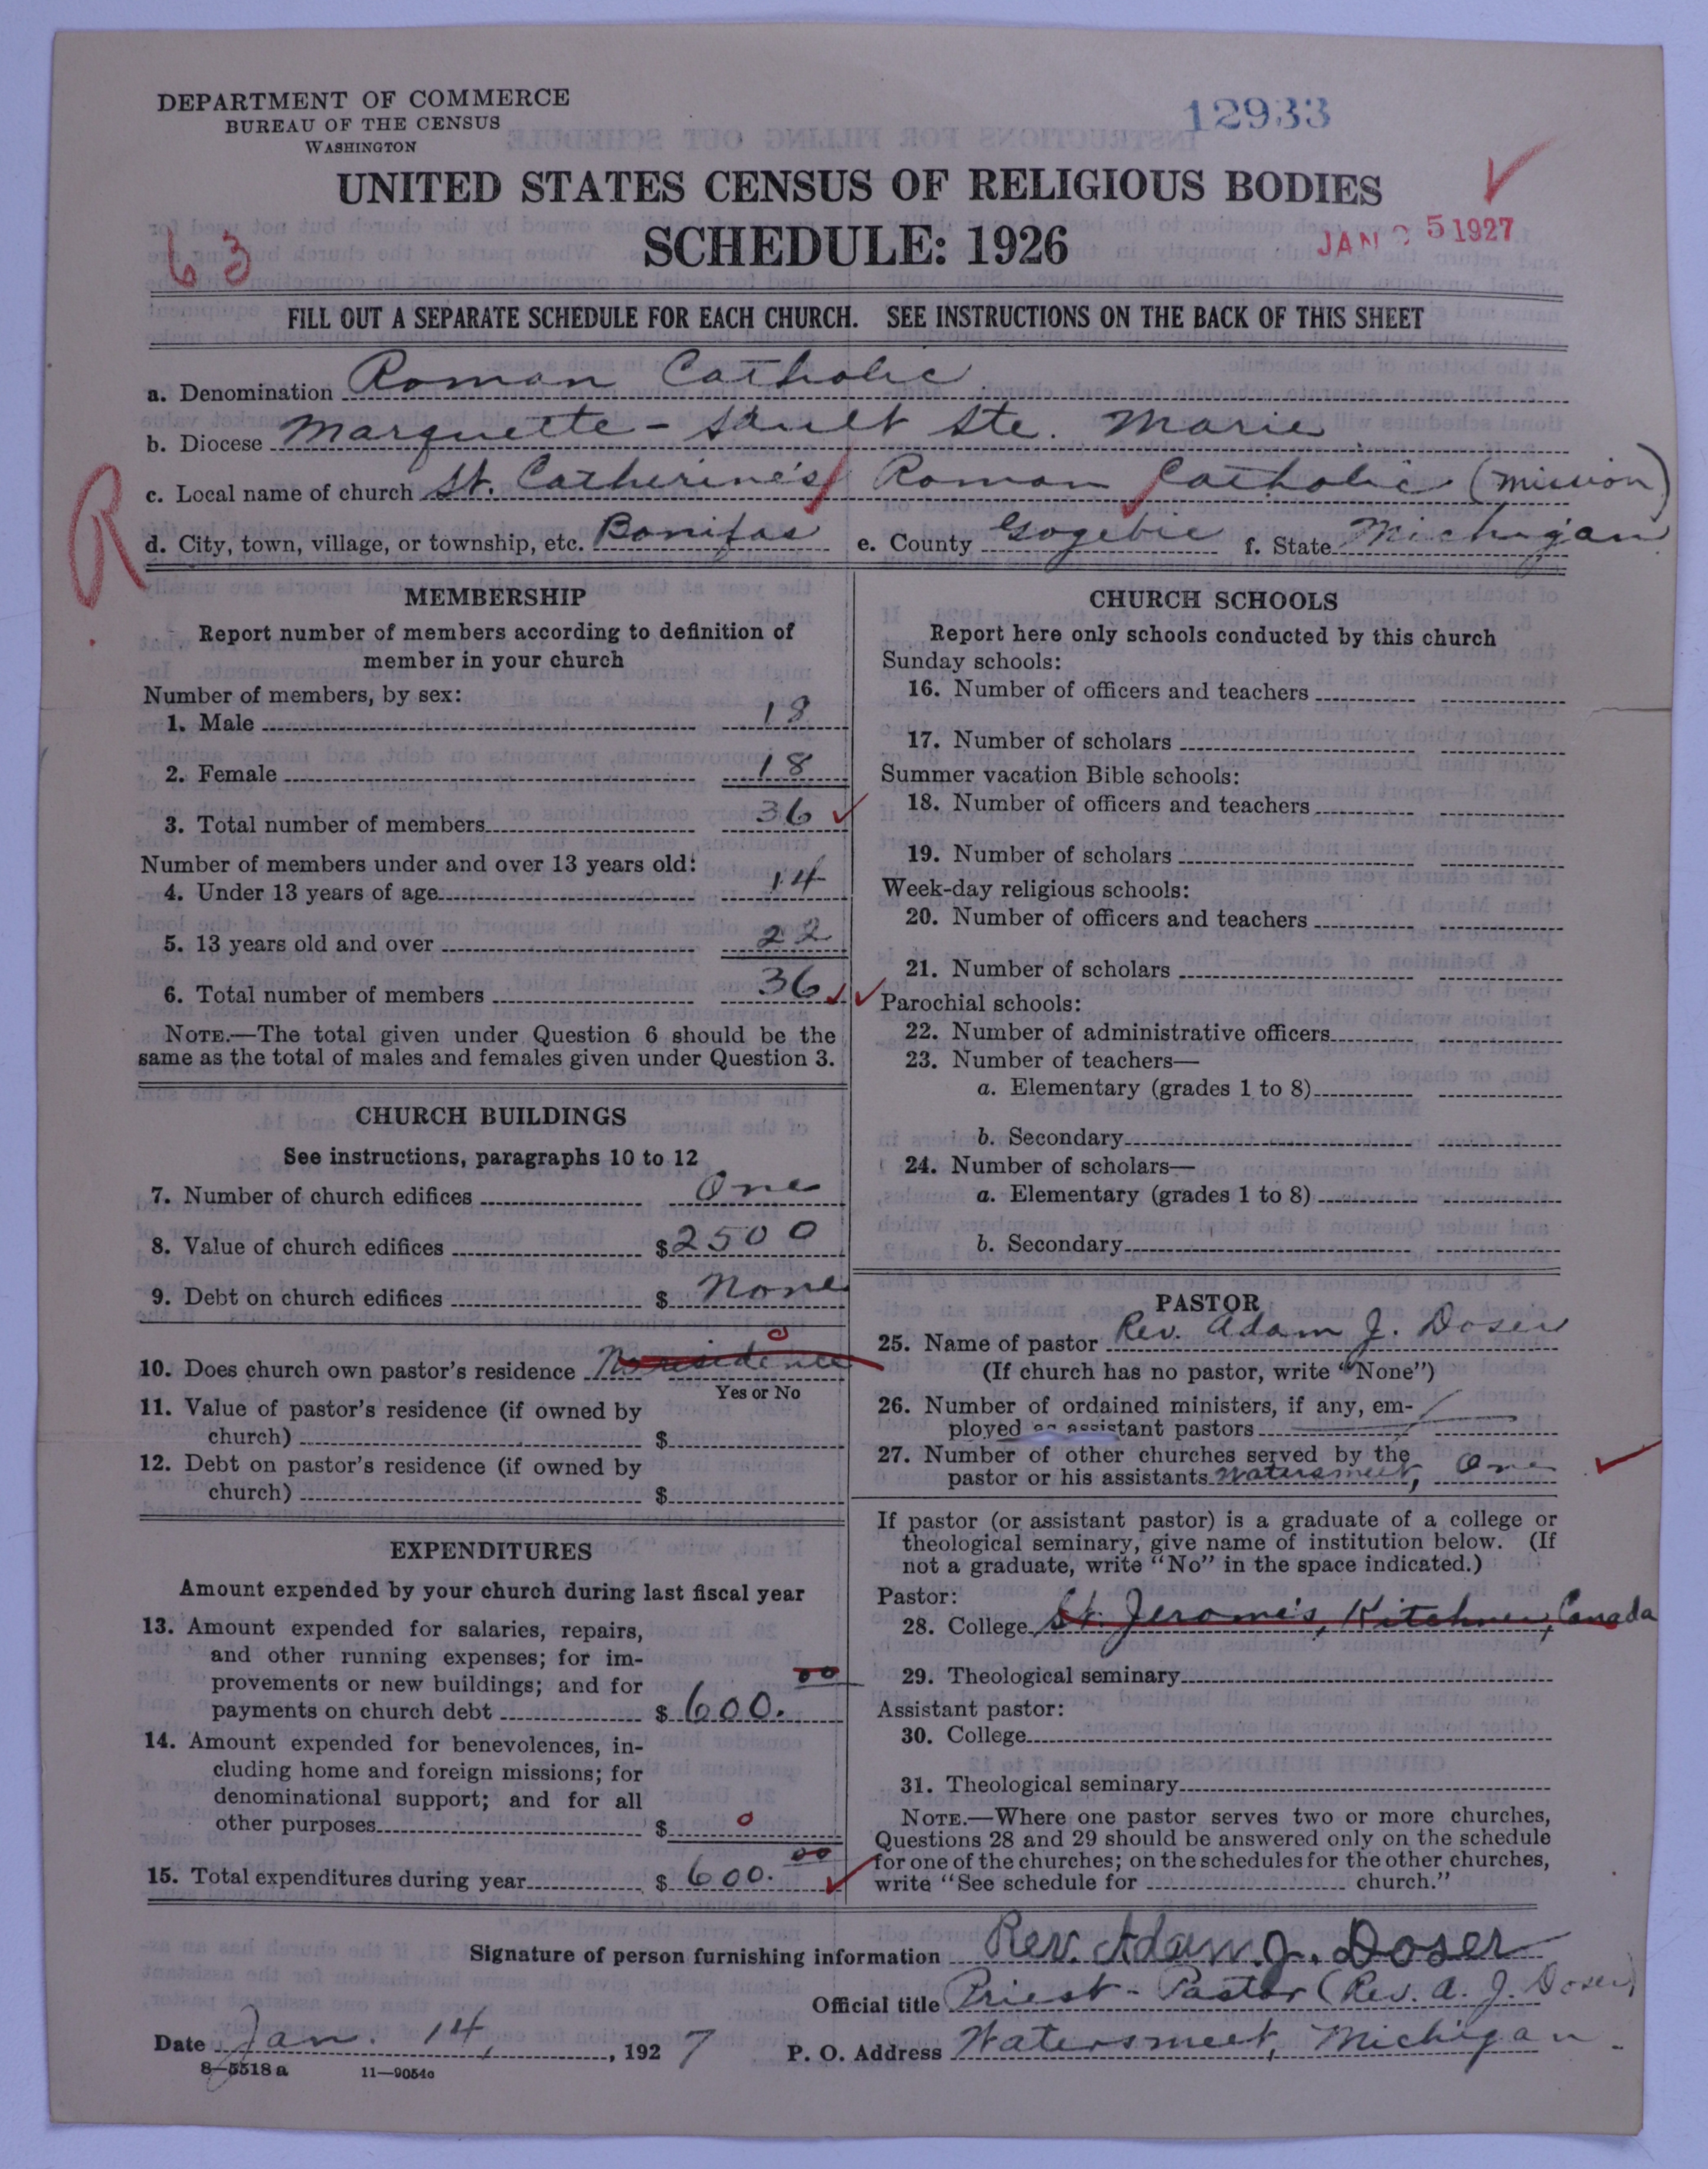 DEPARTMENT OF COMMERCE
BUREAU OF THE CENSUS
WASHINGTON
12933
UNITED STATES CENSUS OF RELIGIOUS BODIES
SCHEDULE: 1926
JAN 25 1927
63
FILL OUT A SEPARATE SCHEDULE FOR EACH CHURCH. SEE INSTRUCTIONS ON THE BACK OF THIS SHEET
a. Denomination Roman Catholic
b. Diocese Marquette - Sault Ste. Marie
c. Local name of church St. Catherine's Roman Catholic (Mission)
R
d. City, town, village, or township, etc. Bonifas e. County Gogebic f. State Michigan
MEMBERSHIP
Report number of members according to definition of
member in your church
Number of members, by sex:
1. Male 18
2. Female 18
3. Total number of members 36
Number of members under and over 13 years old:
4. Under 13 years of age 14
5. 13 years old and over 22
6. Total number of members 36
NOTE.—The total given under Question 6 should be the
same as the total of males and females given under Question 3.
CHURCH BUILDINGS
See instructions, paragraphs 10 to 12
7. Number of church edifices One
8. Value of church edifices $ 2500
9. Debt on church edifices $ None
0
10. Does church own pastor's residence No residence
Yes or No
11. Value of pastor's residence (if owned by
church) $
12. Debt on pastor's residence (if owned by
church) $
EXPENDITURES
Amount expended by your church during last fiscal year
13. Amount expended for salaries, repairs,
and other running expenses; for im-
provements or new buildings; and for
payments on church debt $ 600.00
14. Amount expended for benevolences, in-
cluding home and foreign missions; for
denominational support; and for all
other purposes $ 0
15. Total expenditures during year $ 600.00
CHURCH SCHOOLS
Report here only schools conducted by this church
Sunday schools:
16. Number of officers and teachers
17. Number of scholars
Summer vacation Bible schools:
18. Number of officers and teachers
19. Number of scholars
Week-day religious schools:
20. Number of officers and teachers
21. Number of scholars
Parochial schools:
22. Number of administrative officers
23. Number of teachers—
a. Elementary (grades 1 to 8)
b. Secondary
24. Number of scholars—
a. Elementary (grades 1 to 8)
b. Secondary
PASTOR
25. Name of pastor Rev. Adam J. Doser
(If church has no pastor, write "None")
26. Number of ordained ministers, if any, em-
ployed as assistant pastors
27. Number of other churches served by the
pastor or his assistants Watersmeet, One
If pastor (or assistant pastor) is a graduate of a college or
theological seminary, give name of institution below. (If
not a graduate, write "No" in the space indicated.)
Pastor:
28. College St. Jerome's, Kitchner, Canada
29. Theological seminary
Assistant pastor:
30. College
31. Theological seminary
NOTE.—Where one pastor serves two or more churches,
Questions 28 and 29 should be answered only on the schedule
for one of the churches; on the schedules for the other churches,
write "See schedule for church."
Signature of person furnishing information Rev. Adam J. Doser
Official title Priest - Pastor (Rev. A. J. Doser)
Date Jan. 14, 1927 P. O. Address Watersmeet, Michigan.
8—5518a 11—9054a